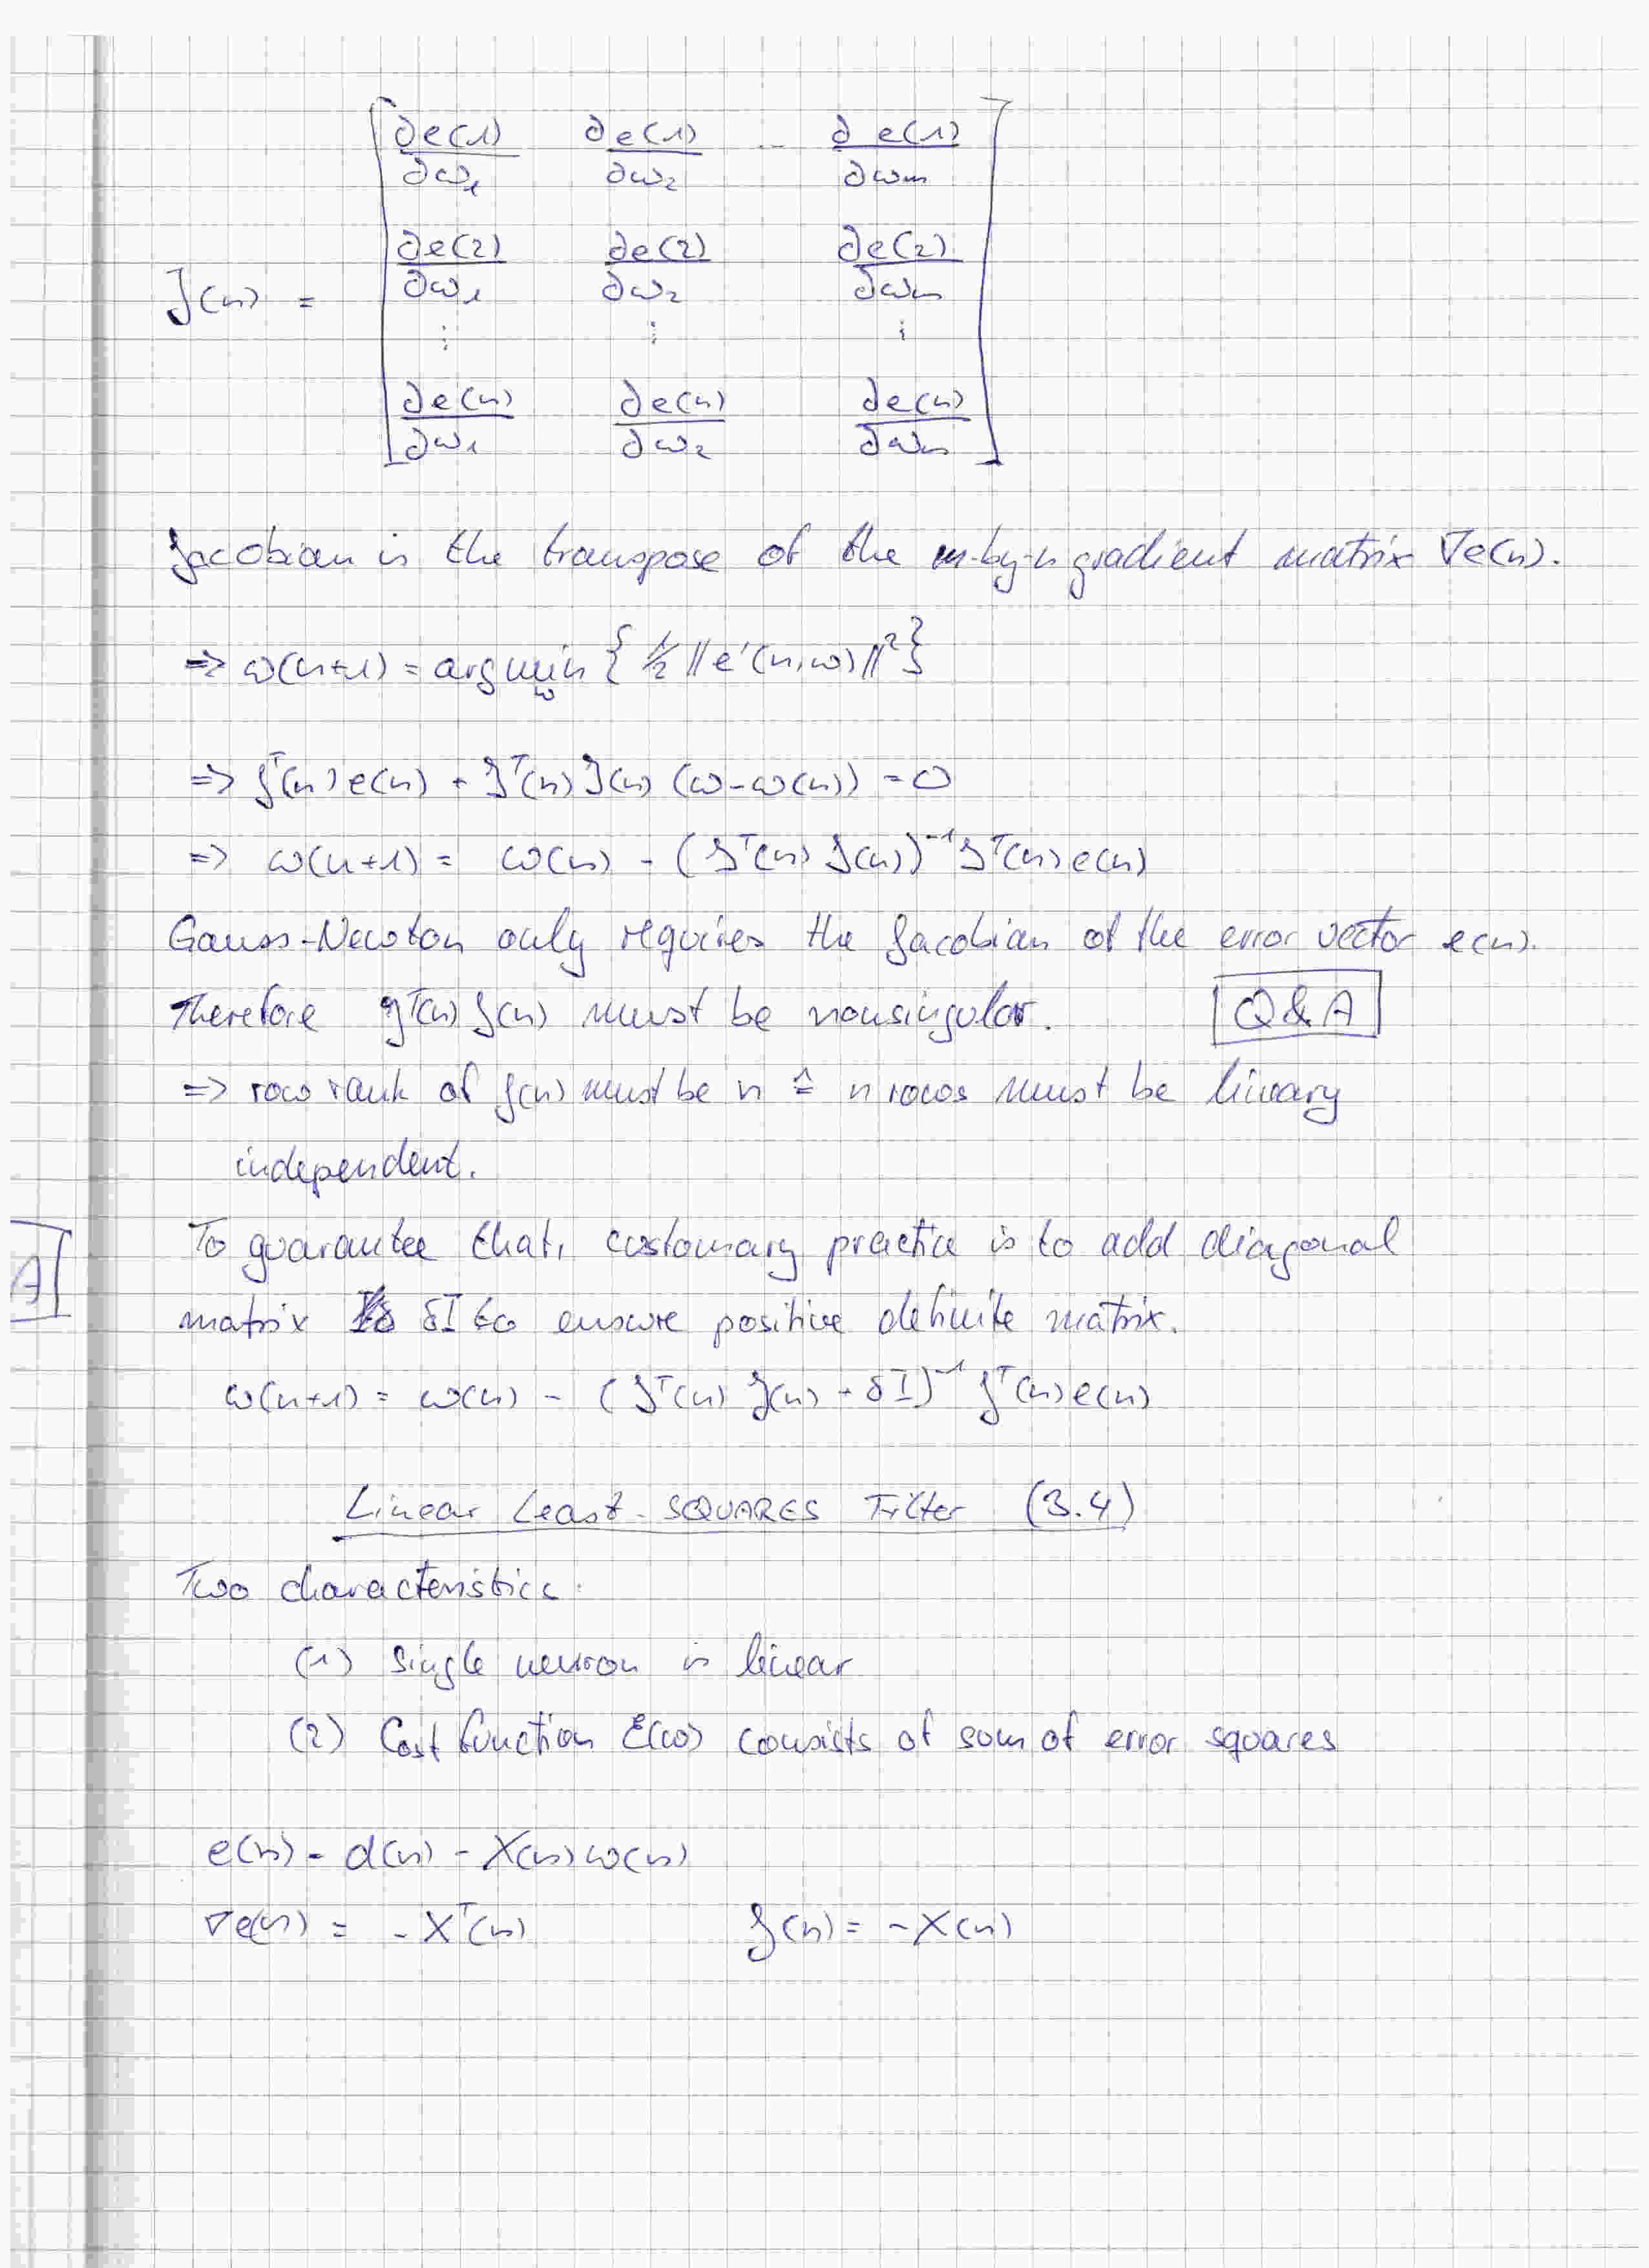 J(n) = [ ∂e(1)/∂ω₁ ∂e(1)/∂ω₂ .. ∂e(1)/∂ωm
∂e(2)/∂ω₁ ∂e(2)/∂ω₂ ∂e(2)/∂ωm
⋮ ⋮ ⋮
∂e(n)/∂ω₁ ∂e(n)/∂ω₂ ∂e(n)/∂ωm ]
Jacobian is the transpose of the m-by-n gradient matrix ∇e(n).
=> ω(n+1) = arg min_ω { 1/2 ||e'(n,ω)||² }
=> Jᵀ(n) e(n) + Jᵀ(n) J(n) (ω-ω(n)) = 0
=> ω(n+1) = ω(n) - (Jᵀ(n) J(n))⁻¹ Jᵀ(n) e(n)
Gauss-Newton only requires the Jacobian of the error vector e(n).
Therefore Jᵀ(n) J(n) must be nonsingular. Q&A
=> row rank of J(n) must be n ≙ n rows must be lineary
independent.
To guarantee that, customary practice is to add diagonal
A
matrix δI to ensure positive definite matrix.
ω(n+1) = ω(n) - (Jᵀ(n) J(n) + δI)⁻¹ Jᵀ(n) e(n)
Linear Least-SQUARES Filter (3.4)
Two characteristics:
(1) Single neuron is linear
(2) Cost function ℰ(ω) consists of sum of error squares
e(n) = d(n) - X(n) ω(n)
∇e(n) = -Xᵀ(n) J(n) = -X(n)